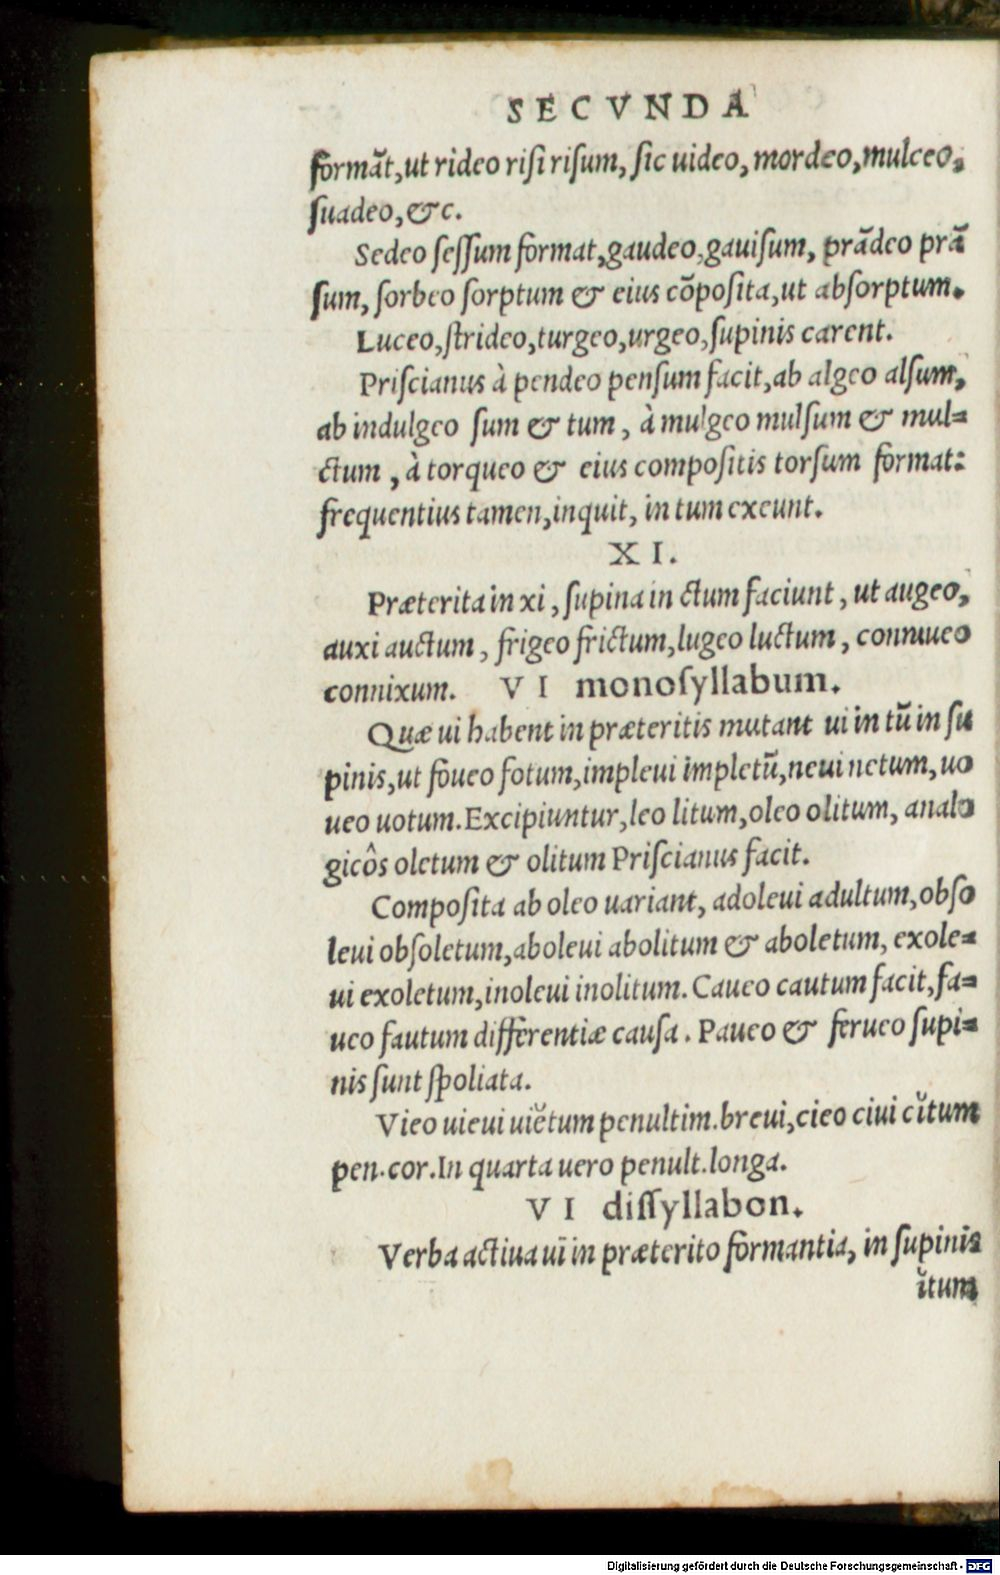 SECVNDA
formãt, ut rideo risi risum, sic uideo, mordeo, mulceo,
suadeo, &c.
Sedeo sessum format, gaudeo, gauisum, prãdeo prã
sum, sorbeo sorptum & eius cõposita, ut absorptum.
Luceo, strideo, turgeo, urgeo, supinis carent.
Priscianus à pendeo pensum facit, ab algeo alsum,
ab indulgeo sum & tum, à mulgeo mulsum & mul=
ctum, à torqueo & eius compositis torsum format:
frequentius tamen, inquit, in tum exeunt.
XI.
Præterita in xi, supina in ctum faciunt, ut augeo,
auxi auctum, frigeo frictum, lugeo luctum, conniueo
connixum. VI monosyllabum.
Quæ ui habent in præteritis mutant ui in tũ in su
pinis, ut foueo fotum, impleui impletũ, neui netum, uo
ueo uotum. Excipiuntur, leo litum, oleo olitum, analo
gicôs oletum & olitum Priscianus facit.
Composita ab oleo uariant, adoleui adultum, obso
leui obsoletum, aboleui abolitum & aboletum, exole=
ui exoletum, inoleui inolitum. Caueo cautum facit, fa=
ueo fautum differentiæ causa. Paueo & ferueo supi=
nis sunt spoliata.
Vieo uieui uiĕtum penultim. breui, cieo ciui cĭtum
pen. cor. In quarta uero penult. longa.
VI dissyllabon.
Verba actiua uï in præterito formantia, in supinis
ĭtum
Digitalisierung gefördert durch die Deutsche Forschungsgemeinschaft - DFG